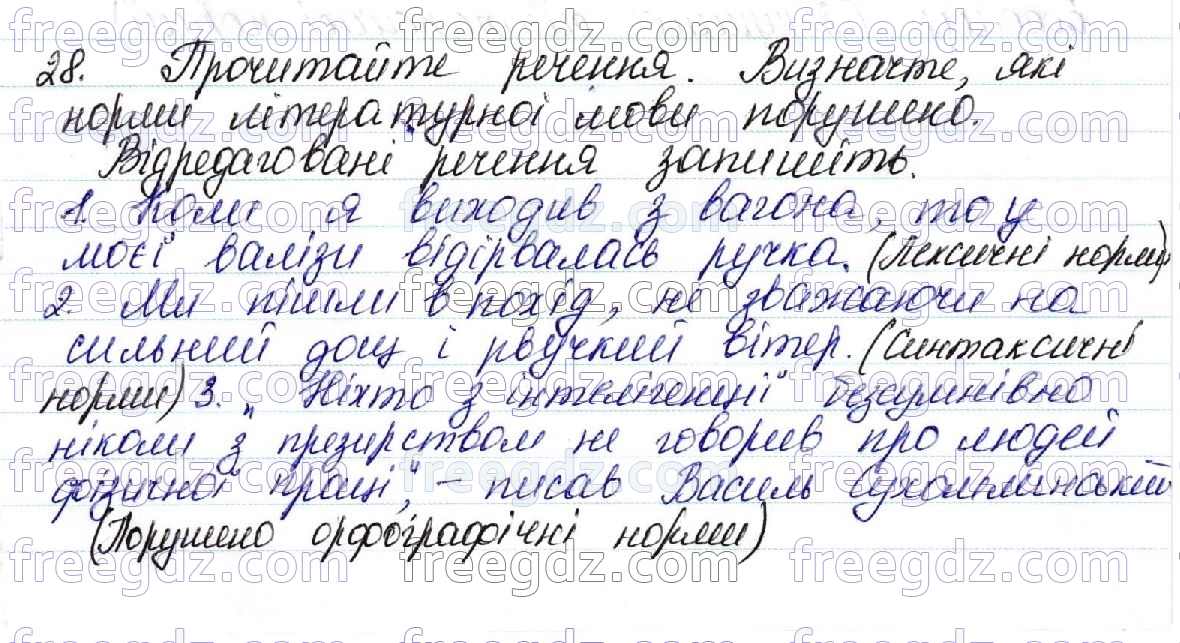 28. Прочитайте речення. Визначте, які
норми літературної мови порушено.
Відредаговані речення запишіть.
1. Коли я виходив з вагона, то у
моєї валізи відірвалась ручка. (Лексичні норми)
2. Ми пішли в похід, не зважаючи на
сильний дощ і рвучкий вітер. (Синтаксичні
норми) 3. „Ніхто з інтелігенції безсумнівно
ніколи з презирством не говорив про людей
фізичної праці", – писав Василь Сухомлинський
(Порушено орфографічні норми)
freegdz.com